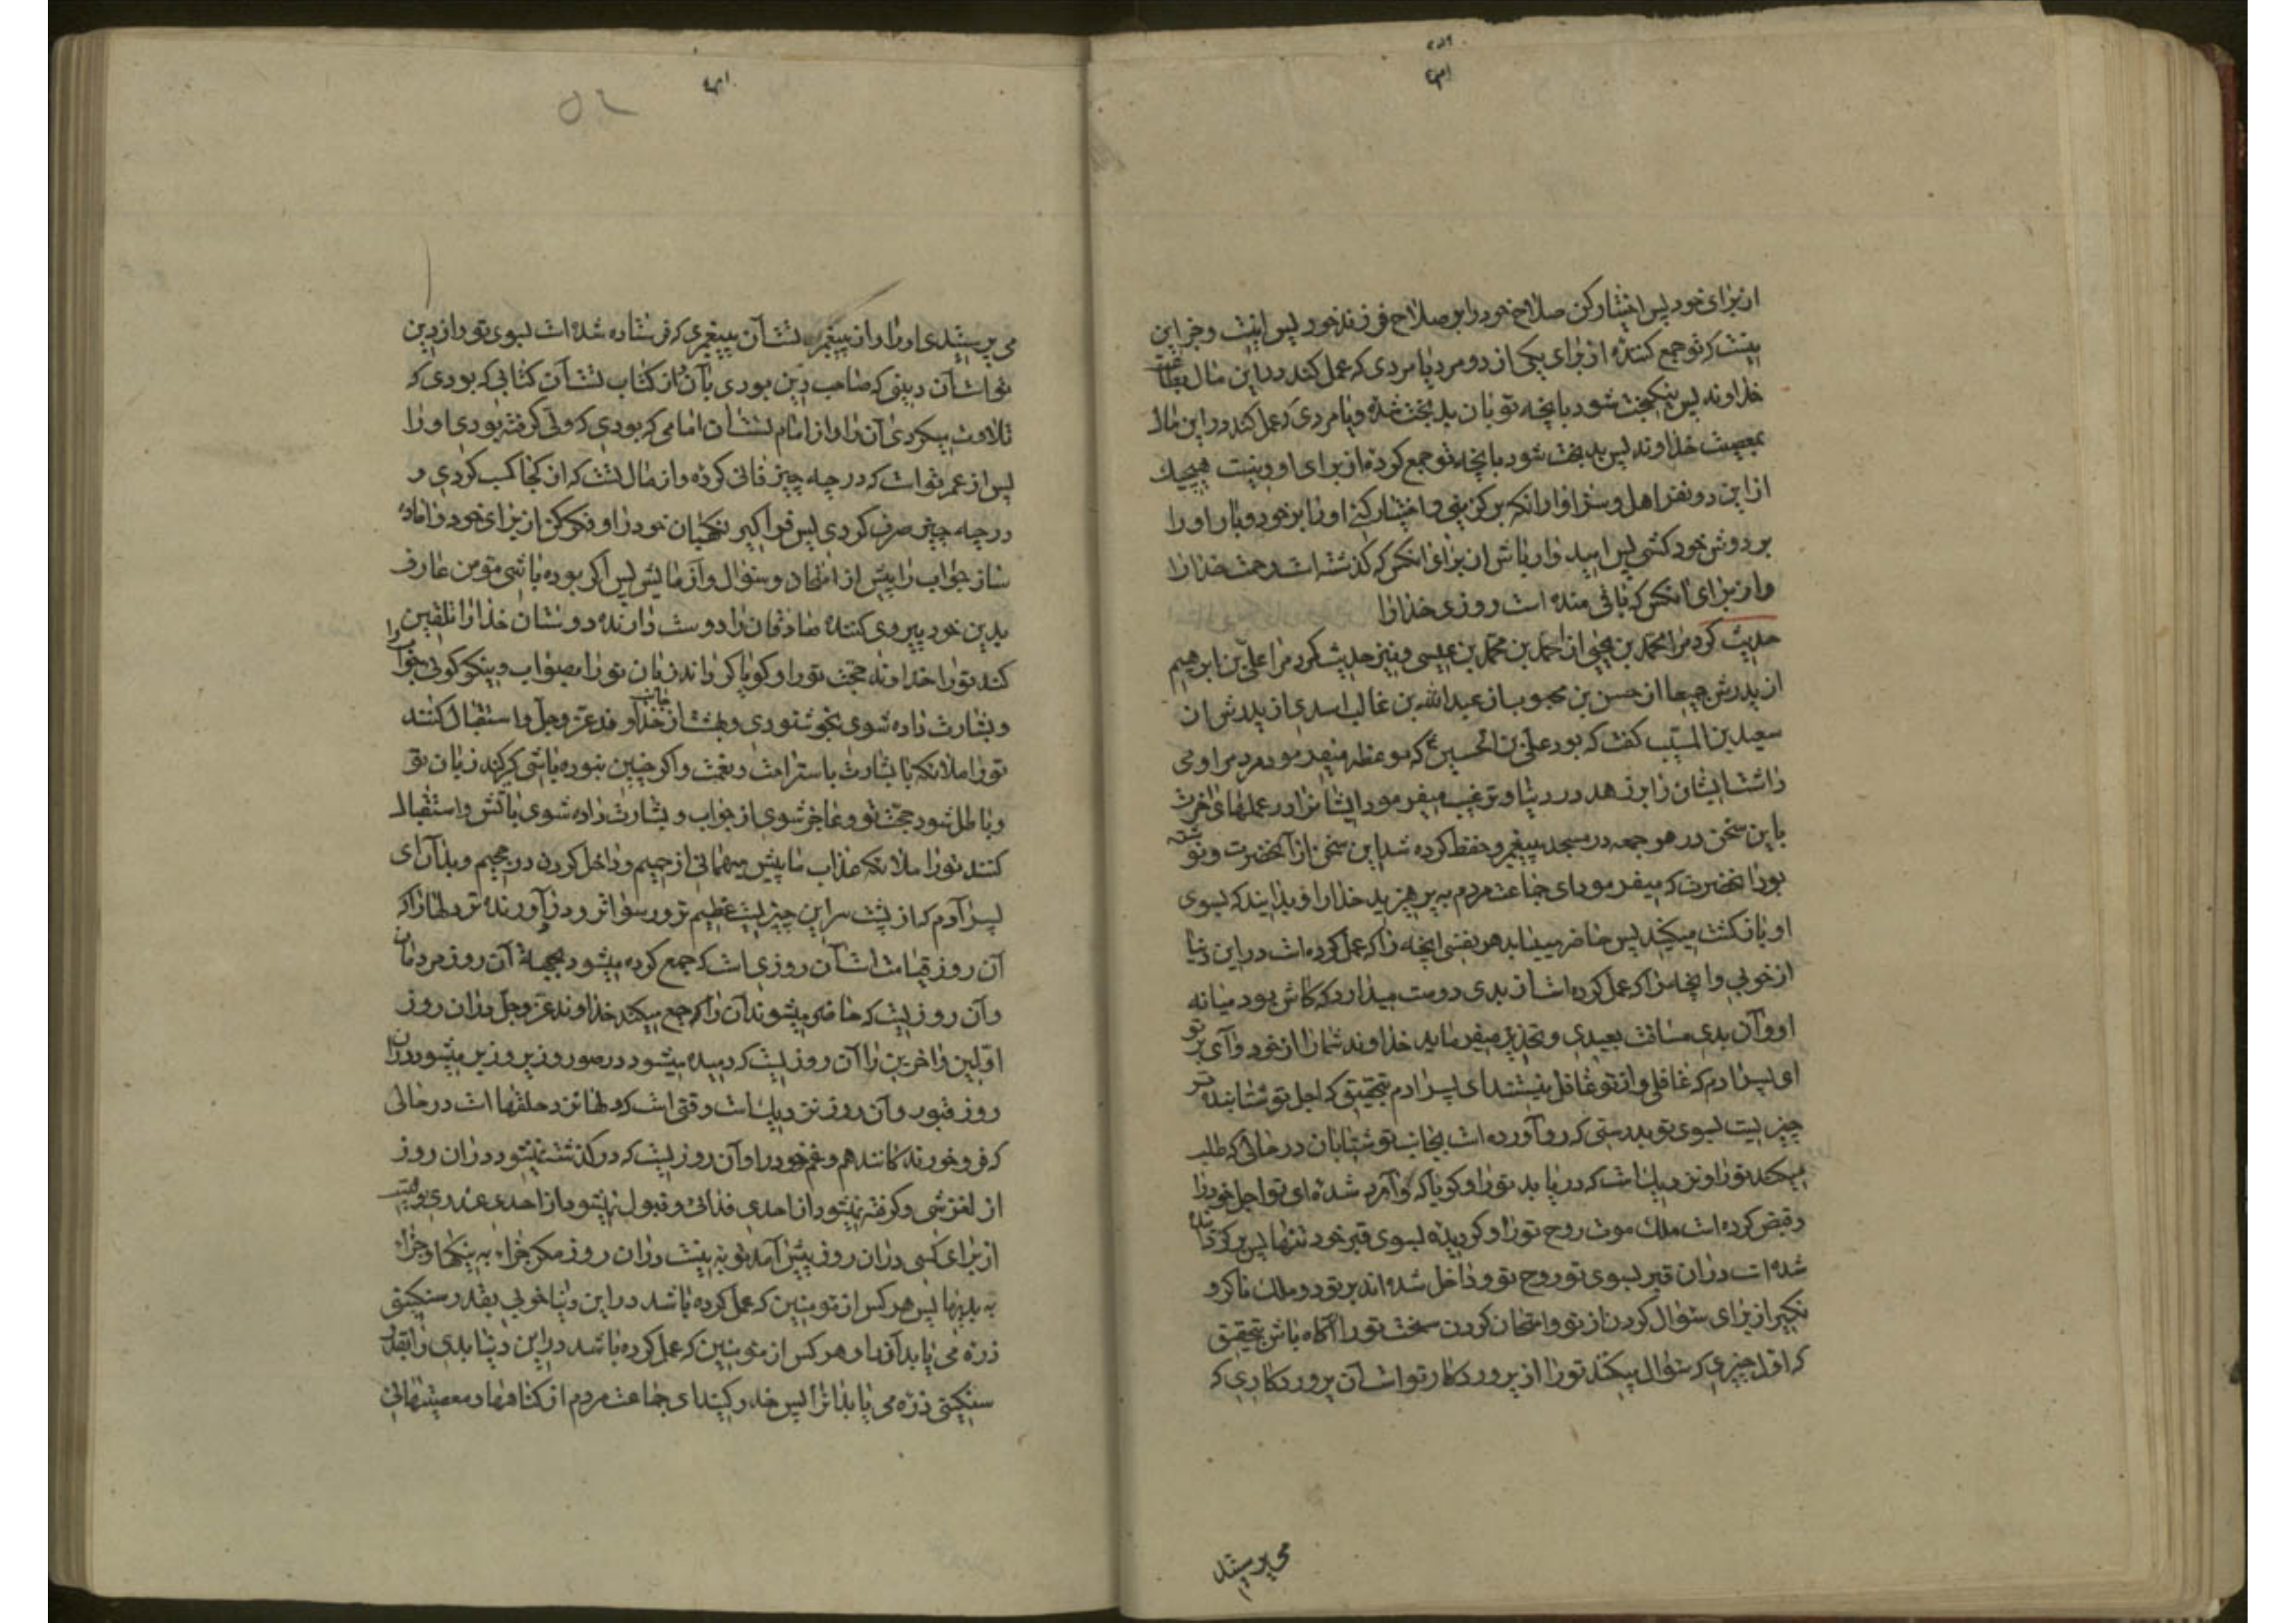 از برای خود پس ایثار کن صلاح خود را بر صلاح فرزند خود پس اینست و جز این
نیست که تو جمع کنندهٔ از برای یکی از دو مرد یا مردی که عمل کند در این مال بطاعت
خداوند پس نیکبخت شود بانچه تو بان بدبخت شدهٔ و یا مردی که عمل کند در این مال
بمعصیت خداوند پس بدبخت شود بانچه تو جمع کردهٔ از برای او و نیست هیچیك
از این دو نفر اهل و سزاوار انکه برگزینی و اختیار کنی او را بر خود و بار او را
بر دوش خود کشی پس امیدوار باش از برای انکس که گذشته است رحمت خدا را
و از برای انکس که باقی منده است روزی خدا را
حدیث کرد مرا محمد بن یحیی از احمد بن محمد بن عیسی و نیز حدیث کرد مرا علی بن ابرهیم
از پدرش جمیعا از حسن بن محبوب از عبدالله بن غالب اسدی از پدرش از
سعید بن المسیب گفت که بود علی بن الحسین ع که موعظه میفرمود مردم را و می
داشت ایشان را بر زهد در دنیا و ترغیب میفرمود ایشانرا در عملهای اخرت
باین سخن در هر جمعه در مسجد پیغمبر و حفظ کرده شد این سخن از آنحضرت و نوشته
بود انحضرت که میفرمود ای جماعت مردم به پرهیزید خدا را و بدانید که بسوی
او بازگشت میکنید پس حاضر مییابد هر نفسی انچه را که عمل کرده است در این دنیا
از خوبی و انچه را که عمل کرده است از بدی دوست میدارد که کاش بود میانه
او و آن بدی مسافت بعیدی و تحذیر میفرماید خداوند شما را از خود وآی بر تو
ای پسر ادم که غافلی و از تو غافل نیستند ای پسر ادم بتحقیق که اجل تو شتابنده تر
چیزیست بسوی تو بدرستی که رو آورده است بجانب تو شتابان در حالی که طلب
میکند تو را و نزدیك است که دریابد تو را و گویا که وآمرم شدهٔ ای تو اجل خود را
و قبض کرده است ملك موت روح تو را و گردیدهٔ بسوی قبر خود تنها پس برگردانده
شده است در ان قبر بسوی تو روح تو و داخل شده اند بر تو دو ملك ناکر و
نکیر از برای سؤال کردن از تو و امتحان کردن سخت تو را آگاه باش بتحقیق
که اول چیزی که سؤال میکنند تو را از پروردکار تو است آن پروردکاری که
می پرستید
می پرستیدی او را و از پیغمبر تست آن پیغمبری که فرستاده شده است بسوی تو و از دین
تو است آن دینی که صاحب دین بودی بآن و از کتاب تست آن کتابی که بودی که
تلاوت میکردی آن را و از امام تست آن امامی که بودی که ولی گرفته بودی او را
پس از عمر تو است که در چه چیز فانی کردهٔ و از مال تست که از کجا کسب کردی و
در چه چیز صرف کردی پس فراگیر نگهبان خود را و فکر کن از برای خود و اماده
ساز جواب را پیش از امتحان و سؤال و آزمایش پس اگر بوده باشی مؤمن عارف
بدین خود پیروی کننده صادقان را دوست دارنده دوستان خدا را تلقین
کند تو را خداوند حجت تو را و گویا گرداند زبان تو را بصواب و نیکو گوئی جواب را
و بشارت داده شوی بخوشنودی و بهشت از جانب خداوند عزوجل و استقبال کنند
تو را ملائکه با بشارت باستراحت و نعمت و اگر چنین نبوده باشی گیر کند زبان تو
و باطل شود حجت تو و عاجز شوی از جواب و بشارت داده شوی باتش و استقبال
کنند تو را ملائکه عذاب با پیش میهمانی از حمیم و داخل کردن در جحیم و بدآن ای
پسر آدم که از پشت سر این چیزیست عظیم تر و رسواتر و دردآورنده تر دلها را که
آن روز قیامت است آن روزی است که جمع کرده میشود بجهة آن روز مردمان
و آن روزیست که حاضر میشوند آن را که جمع میکند خداوند عزوجل در ان روز
اولین و اخرین را آن روزیست که دمیده میشود در صور و زیر و زبر میشود در ان
روز قبور و آن روز نزدیك است وقتی است که دلها نزد حلقها است در حالی
که فرو خورنده کانند هم و غم خود را و آن روزیست که درگذشته نمیشود در ان روز
از لغزشی و گرفته نمیشود از احدی فدائی و قبول نمیشود از احدی عذری و نیست
از برای کسی در ان روز پیش آمد توبه نیست در ان روز مگر جزاء به نیکیها و جزاء
به بدیها پس هر کس از مؤمنین که عمل کرده باشد در این دنیا خوبی بقدر سنگینی
ذره می یابد آن را و هر کس از مؤمنین که عمل کرده باشد در این دنیا بدی را بقدر
سنگینی ذره می یابد انرا پس حذر کنید ای جماعت مردم از گناهها و معصیتهائی